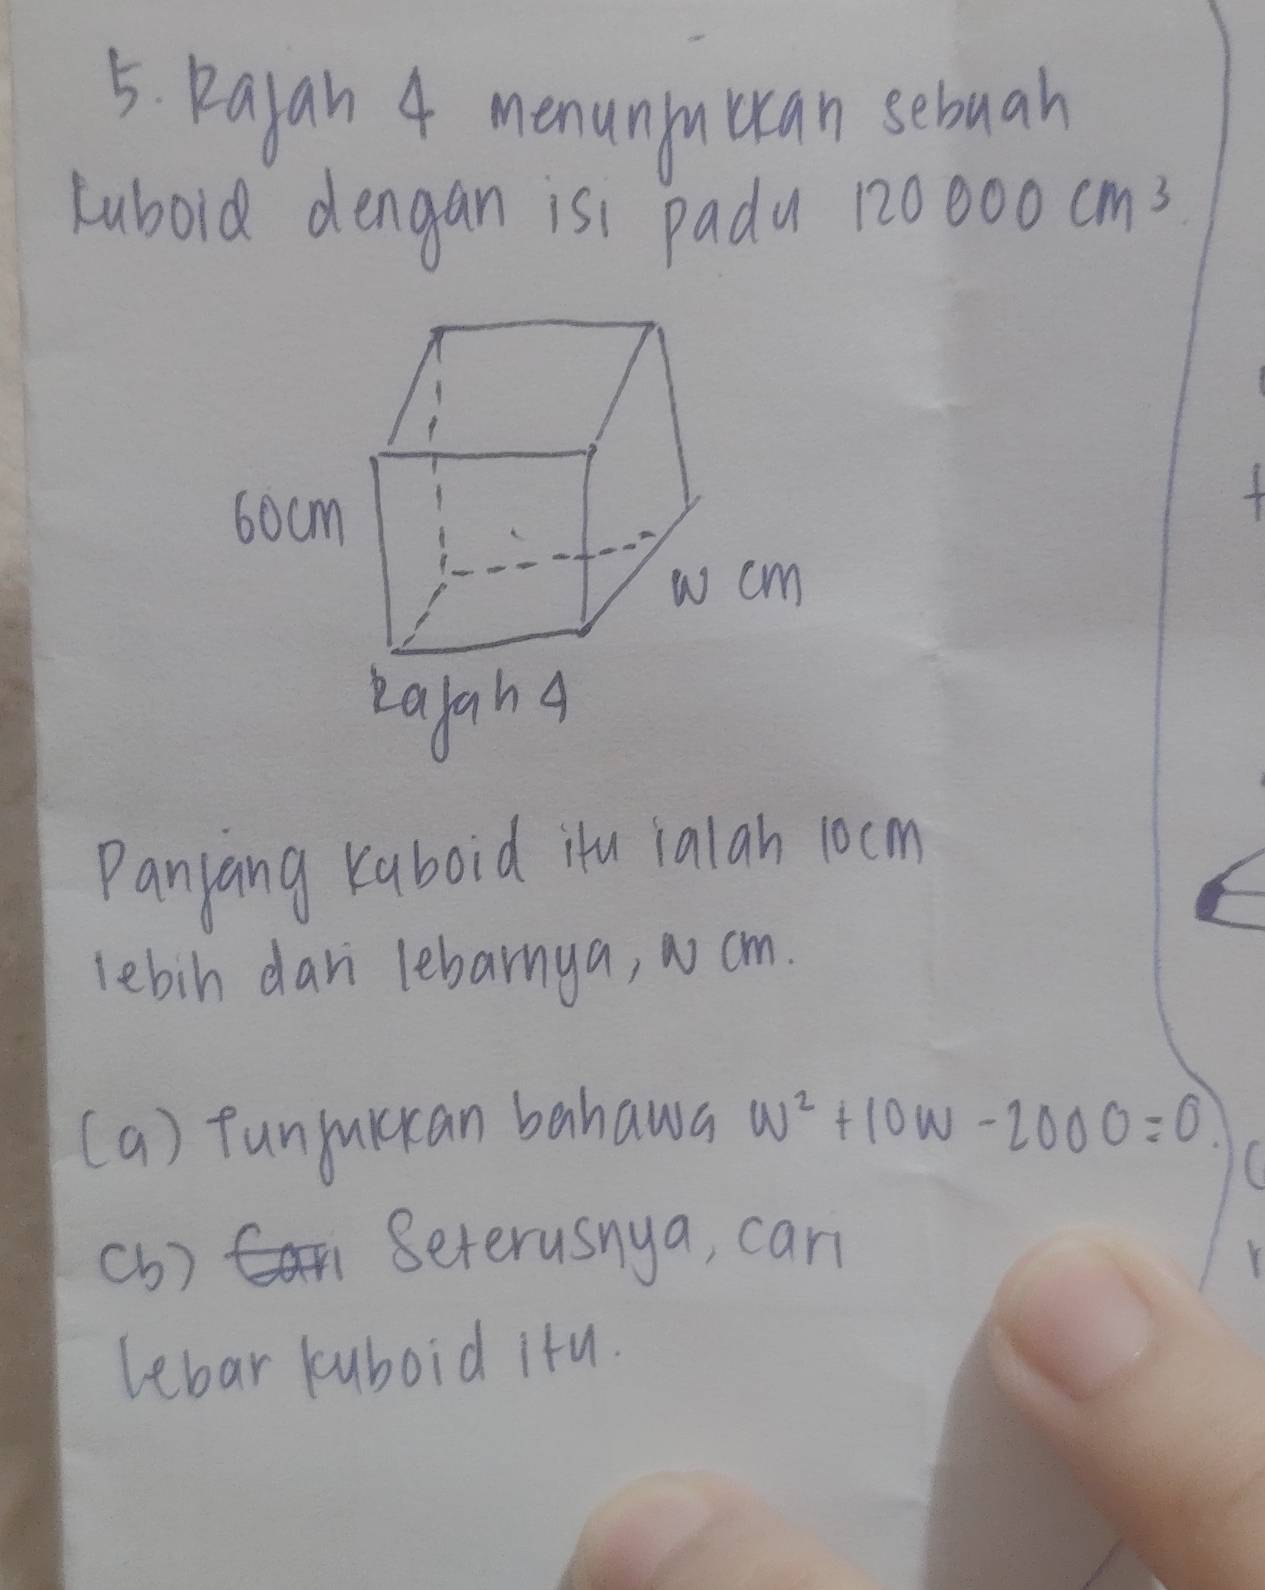 5. Rajah 4 menunjukkan sebuah
kuboid dengan isi padu 120 000 cm³.
60cm
w cm
Rajah 4
Panjang kuboid itu ialah 10cm
lebih dari lebarnya, w cm.
(a) Tunjukkan bahawa w² + 10w - 2000 = 0.
(b) Cari Seterusnya, cari
lebar kuboid itu.